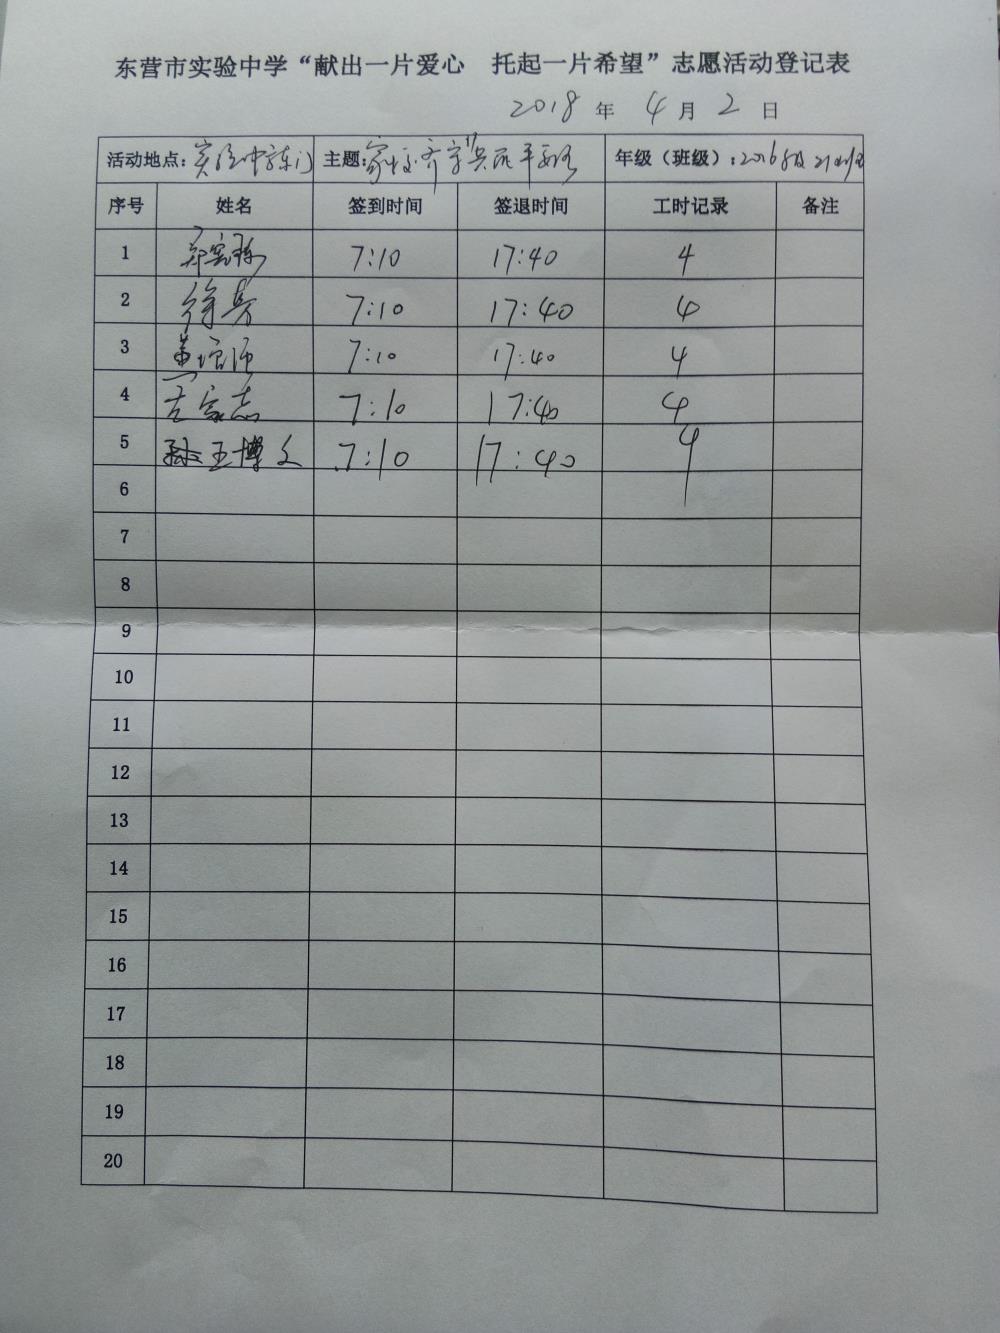 东营市实验中学“献出一片爱心 托起一片希望”志愿活动登记表
2018 年 4 月 2 日
活动地点：实验中学东门 主题：家校齐守护 共筑平安路 年级（班级）：2016级21班
序号 姓名 签到时间 签退时间 工时记录 备注
1 7:10 17:40 4
2 徐 7:10 17:40 4
3 7:10 17:40 4
4 家志 7:10 17:40 4
5 孙王博文 7:10 17:40 4
6
7
8
9
10
11
12
13
14
15
16
17
18
19
20